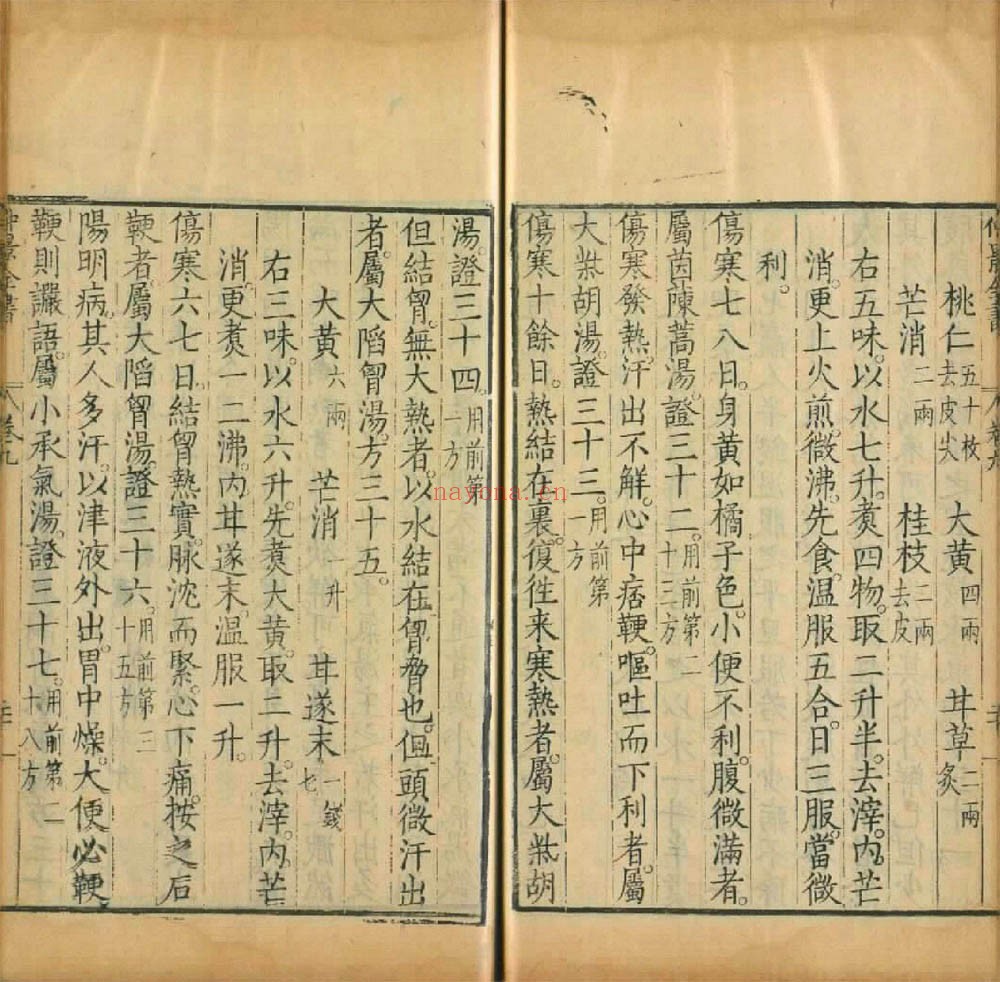 桃仁五十枚去皮尖 大黃四兩 甘草二兩炙
芒消二兩 桂枝二兩去皮
右五味。以水七升。煑四物。取二升半。去滓。內芒
消。更上火煎微沸。先食。溫服五合。日三服。當微
利。
傷寒七八日。身黃如橘子色。小便不利。腹微滿者。
屬茵蔯蒿湯。證三十二。用前第二十三方
傷寒發熱。汗出不解。心中痞鞕。嘔吐而下利者。屬
大柴胡湯。證三十三。用前第一方
傷寒十餘日。熱結在裏。復徃来寒熱者。屬大柴胡
湯。證三十四。用前第一方
但結胷。無大熱者。以水結在胷脅也。但頭微汗出
者。屬大陷胷湯。方三十五。
大黃六兩 芒消一升 甘遂末一錢七
右三味。以水六升。先煑大黃。取二升。去滓。內芒
消。更煑一二沸。內甘遂末。溫服一升。
傷寒六七日。結胷熱實。脉沈而緊。心下痛。按之石
鞕者。屬大陷胷湯。證三十六。用前第三十五方
陽明病。其人多汗。以津液外出。胃中燥。大便必鞕
鞕則讝語。屬小承氣湯。證三十七。用前第二十八方
仲景全書 卷九
nayona.cn